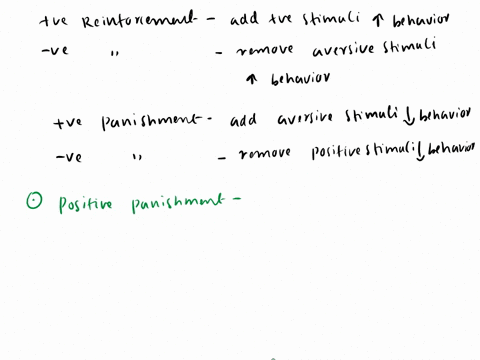 +ve Reinforcement - add +ve stimuli ↑ behavior
-ve " - remove aversive stimuli
↑ behavior
+ve panishment - add aversive stimuli ↓ behavior
-ve " - remove positive stimuli ↓ behavior
⊙ Positive panishment -